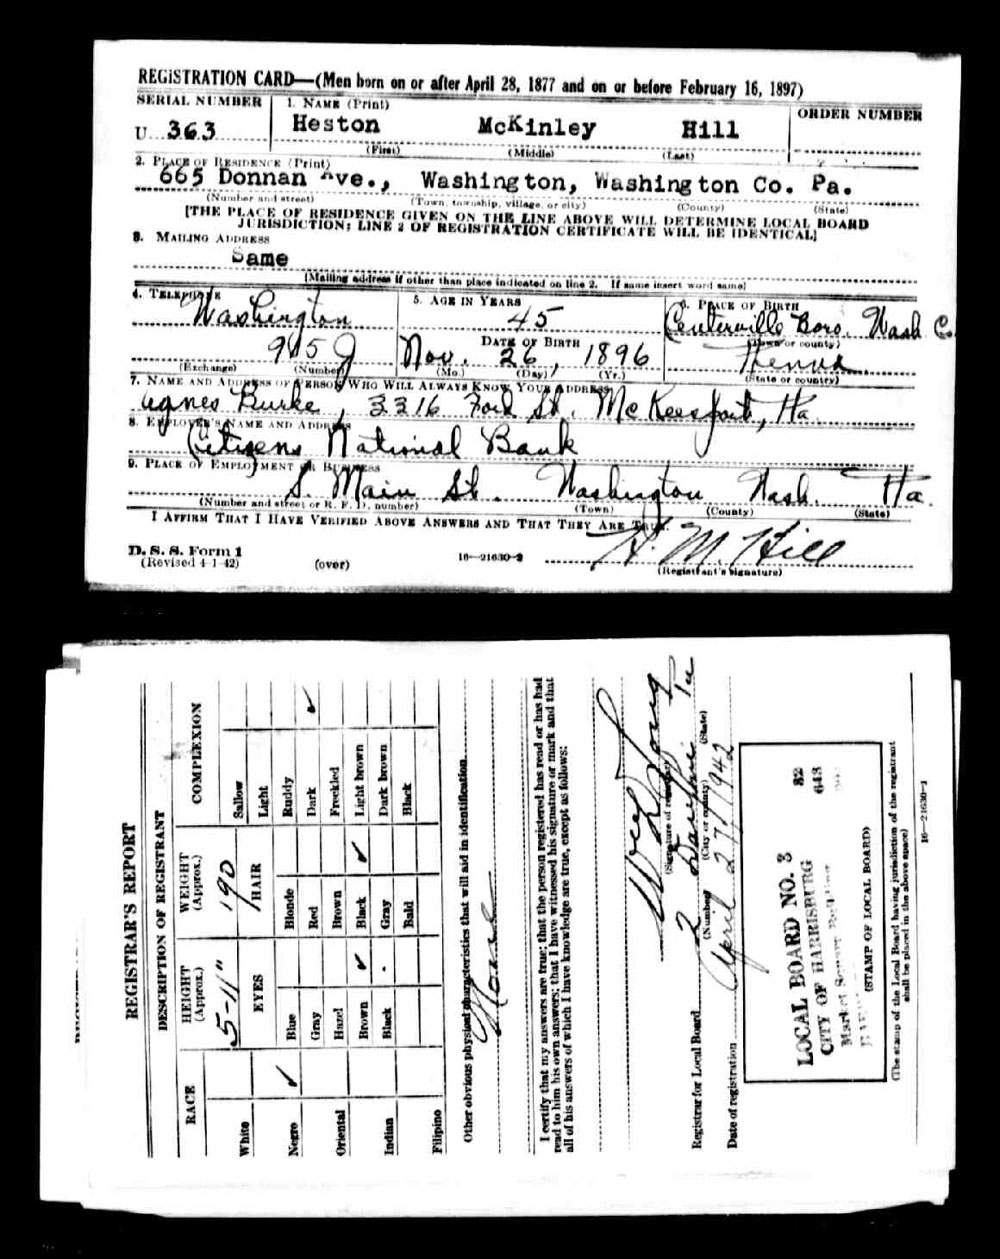 REGISTRATION CARD—(Men born on or after April 28, 1877 and on or before February 16, 1897)
SERIAL NUMBER 1. NAME (Print) ORDER NUMBER
U 363 Heston McKinley Hill
(First) (Middle) (Last)
2. PLACE OF RESIDENCE (Print)
665 Donnan Ave., Washington, Washington Co. Pa.
(Number and street) (Town, township, village, or city) (County) (State)
[THE PLACE OF RESIDENCE GIVEN ON THE LINE ABOVE WILL DETERMINE LOCAL BOARD
JURISDICTION; LINE 2 OF REGISTRATION CERTIFICATE WILL BE IDENTICAL]
3. MAILING ADDRESS
Same
[Mailing address if other than place indicated on line 2. If same insert word same]
4. TELEPHONE 5. AGE IN YEARS 6. PLACE OF BIRTH
Washington 45 Centerville Boro. Wash Co.
DATE OF BIRTH (Town or county)
945 J Nov. 26, 1896 Penna
(Exchange) (Number) (Mo.) (Day) (Yr.) (State or country)
7. NAME AND ADDRESS OF PERSON WHO WILL ALWAYS KNOW YOUR ADDRESS
Agnes Burke, 3316 St. McKeesport, Pa.
8. EMPLOYER'S NAME AND ADDRESS
Citizens National Bank
9. PLACE OF EMPLOYMENT OR BUSINESS
S. Main St. Washington Wash. Pa.
(Number and street or R. F. D. number) (Town) (County) (State)
I AFFIRM THAT I HAVE VERIFIED ABOVE ANSWERS AND THAT THEY ARE TRUE.
H. M. Hill
D. S. S. Form 1
(Revised 4-1-42) (over) 16—21630-2 (Registrant's signature)
REGISTRAR'S REPORT
DESCRIPTION OF REGISTRANT
RACE HEIGHT (Approx.) WEIGHT (Approx.) COMPLEXION
5-11" 190
EYES HAIR
White Blue Blonde Sallow
Negro ✓ Gray Red Light
Oriental Hazel Brown Ruddy
Indian Brown ✓ Black ✓ Dark ✓
Filipino Black Gray Freckled
Bald Light brown
Dark brown
Black
Other obvious physical characteristics that will aid in identification
None
I certify that my answers are true; that the person registered has read or has had
read to him his own answers; that I have witnessed his signature or mark and that
all of his answers of which I have knowledge are true, except as follows:
(Signature of registrar)
Registrar for Local Board 2 Dauphin
(Number) (City or county) (State)
Date of registration April 27 1942
LOCAL BOARD NO. 3 82
CITY OF HARRISBURG 643
Market Square
(STAMP OF LOCAL BOARD)
(The stamp of the Local Board having jurisdiction of the registrant
shall be placed in the above space)
16—21630-1